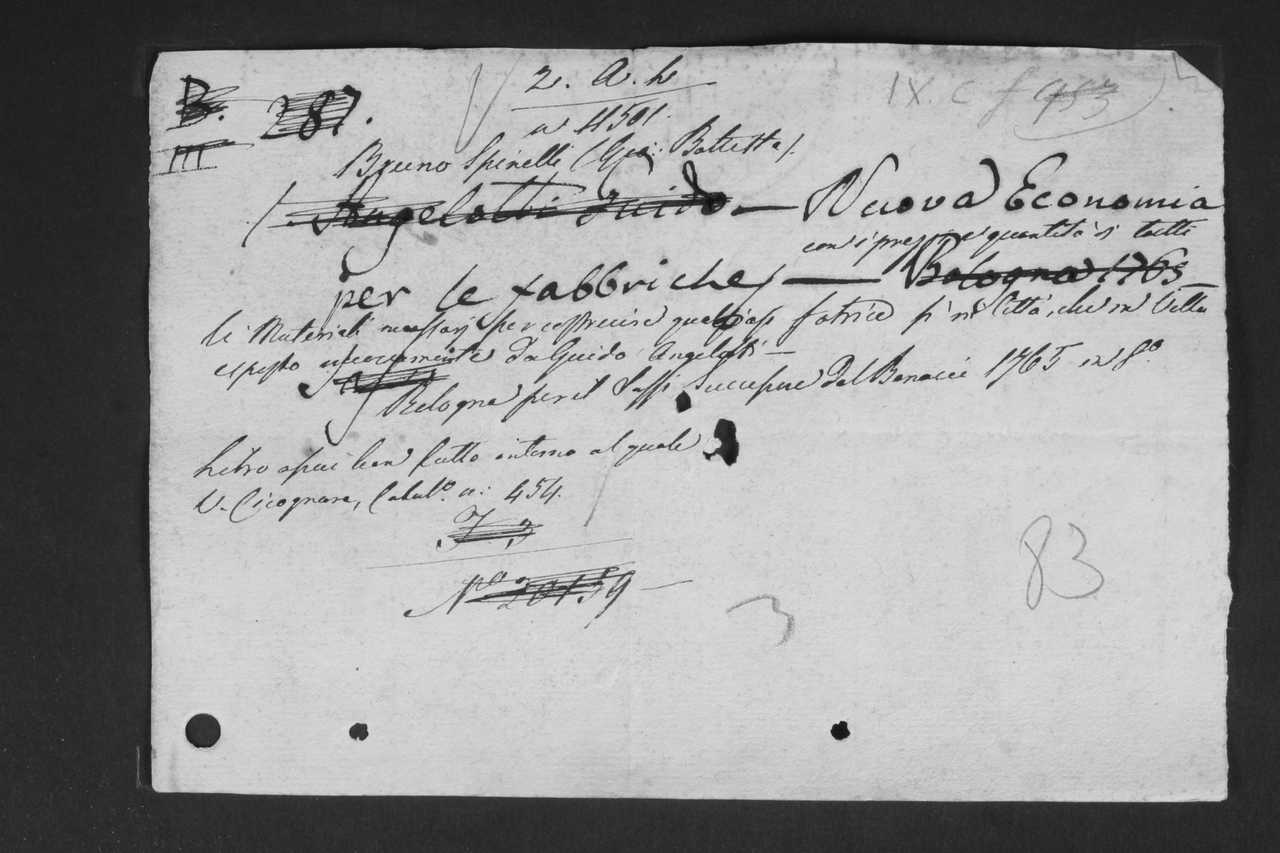 2. A. h
B. 287. IX. C f 983
III n 4501.
Bruno Spinelli (Gio: Battista).
(Angelotti Guido — Nuova Economia
con i prezzi e quantità di tutti
per le fabbriche) — Bologna 1765
li Materiali necessarj per costruire qualsiasi fabrica sì in Città, che in Villa
esposto da Guido Angelotti —
Bologna per il Sassi Successore del Benacci 1765 in 8º
Libro assai ben fatto intorno al quale
V. Cicognara, Catal.º n: 454.
F. 3
Nº 20159 —
83
3